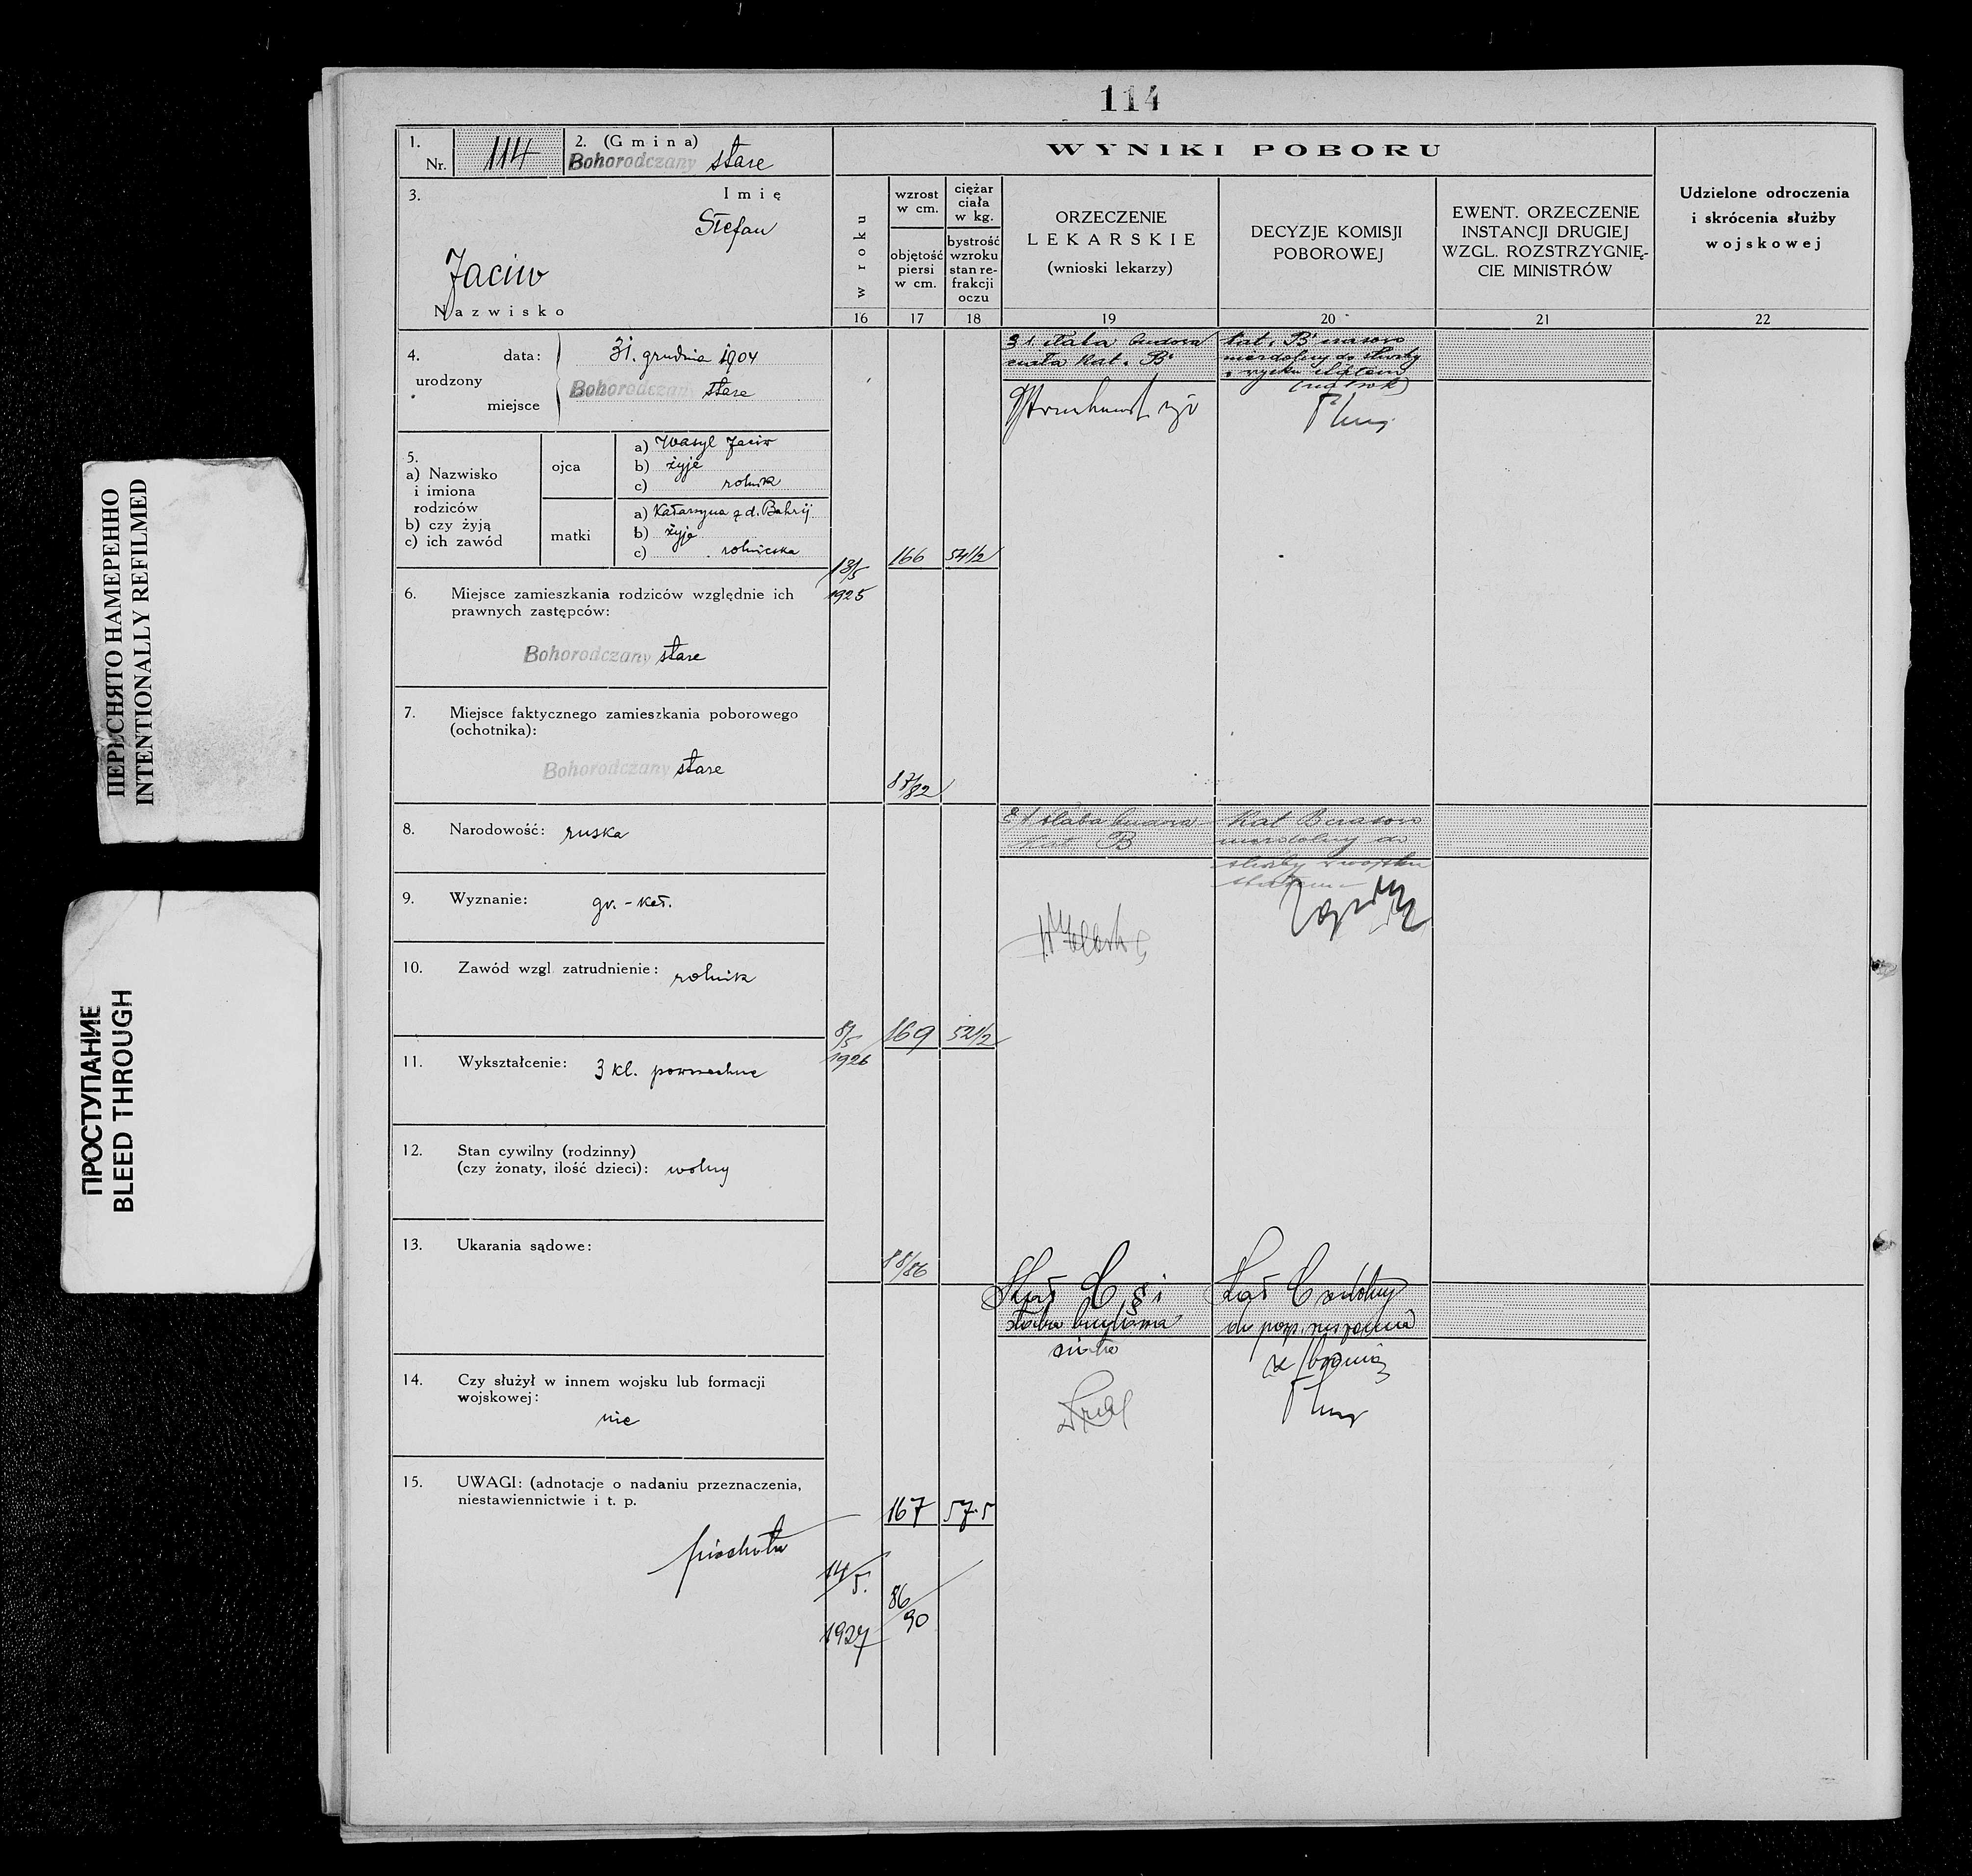 114
1.
Nr. 114
2. (Gmina)
Bohorodczany stare
3.
Imię
Stefan
Jaciw
Nazwisko
4.
urodzony
data: 31. grudnia 1904
miejsce Bohorodczany stare
5.
a) Nazwisko
i imiona
rodziców
b) czy żyją
c) ich zawód
ojca
a) Wasyl Jaciw
b) żyje
c) rolnik
matki
a) Katarzyna z d. Bahrij
b) żyje
c) rolniczka
6. Miejsce zamieszkania rodziców względnie ich
prawnych zastępców:
Bohorodczany stare
7. Miejsce faktycznego zamieszkania poborowego
(ochotnika):
Bohorodczany stare
8. Narodowość: ruska
9. Wyznanie: gr.-kat.
10. Zawód wzgl. zatrudnienie: rolnik
11. Wykształcenie: 3 kl. powszechne
12. Stan cywilny (rodzinny)
(czy żonaty, ilość dzieci): wolny
13. Ukarania sądowe:
14. Czy służył w innem wojsku lub formacji
wojskowej:
nie
15. UWAGI: (adnotacje o nadaniu przeznaczenia,
niestawiennictwie i t. p.
piechota
WYNIKI POBORU
w roku
16
wzrost
w cm.
objętość
piersi
w cm.
17
ciężar
ciała
w kg.
bystrość
wzroku
stan re-
frakcji
oczu
18
ORZECZENIE
LEKARSKIE
(wnioski lekarzy)
19
DECYZJE KOMISJI
POBOROWEJ
20
EWENT. ORZECZENIE
INSTANCJI DRUGIEJ
WZGL. ROZSTRZYGNIĘ-
CIE MINISTRÓW
21
Udzielone odroczenia
i skrócenia służby
wojskowej
22
słaba budowa
ciała Kat. B
Kat. B czasowo
niezdolny do służby
13/5
1925
166
54 1/2
87/82
słaba budowa
kat B
Kat B czasowo
niezdolny do
służby w wojsku
8/5
1926
169
52 1/2
88/86
Kat C
słaba budowa
ciała
Kat C zdolny
do posp. ruszenia
z bronią
167
57.5
14/5.
1927
86/90
ПЕРЕСНЯТО НАМЕРЕННО
INTENTIONALLY REFILMED
ПРОСТУПАНИЕ
BLEED THROUGH